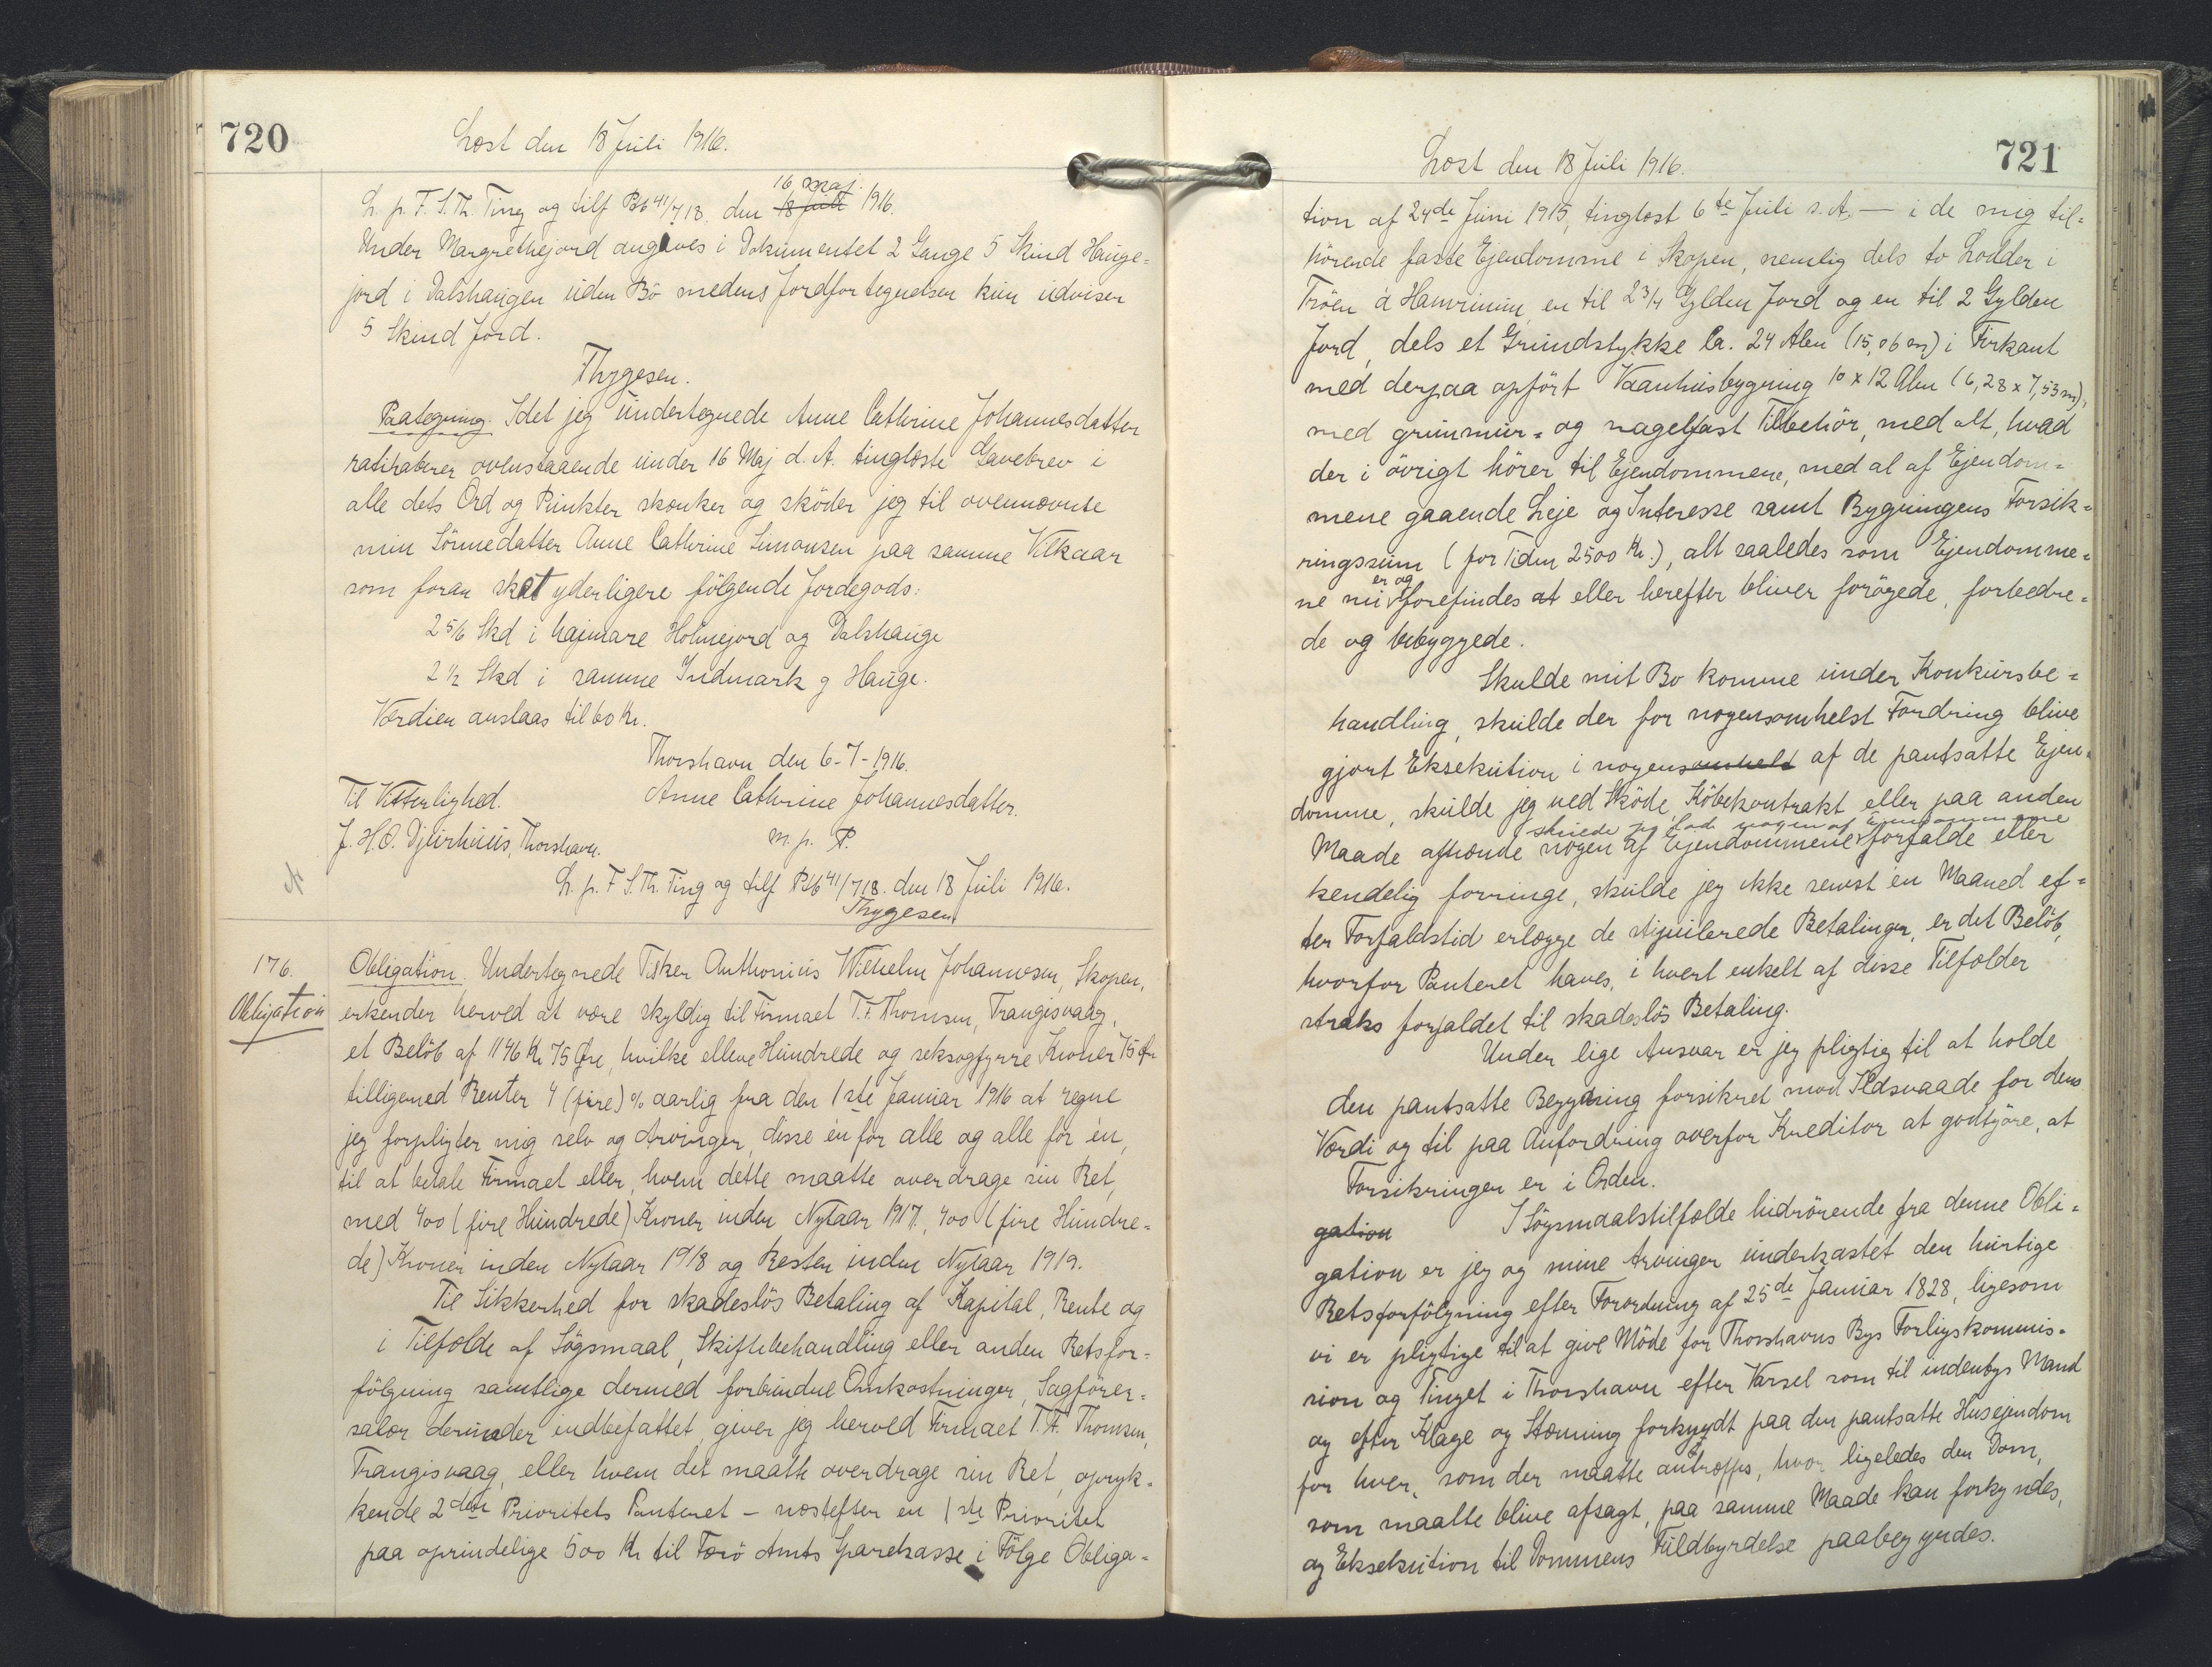 720
Læst den 18 Juli 1916.
L. p. F. S. Th. Ting og tilf Pb 41/718. den 18 Juli 16 Maj. 1916.
Under Margrethejord angives i Dokumentet 2 Gange 5 Skind Hauge-
jord i Dalshaugen uden Bö medens Jordfortegnelsen kun udviser
5 Skind Jord.
Thygesen.
Paategning. Idet jeg undertegnede Anne Cathrine Johannesdatter
ratihaberer ovenstaaende under 16 Maj d. A. tinglæste Gavebrev i
alle dets Ord og Punkter skænker og sköder jeg til ovennævnte
min Sönnedatter Anne Cathrine Simonsen paa samme Vilkaar
som foran skat yderligere fölgende Jordegods:
2 5/6 Skd i hajmare Holmejord og Dalshauge
2 1/2 Skd i samme Indmark og Hauge.
Værdien anslaas til 60 Kr.
Thorshavn den 6-7-1916.
Til Vitterlighed. Anne Cathrine Johannesdatter.
J. H. O. Djurhuus, Thorshavn. m. p. P.
L. p. F S. Th. Ting og tilf Pb 41/718. den 18 Juli 1916.
Thygesen
176.
Obligation
Obligation. Undertegnede Fisker Anthonius Wilhelm Johannesen, Skopen,
erkender herved at være skyldig til Firmaet T. F. Thomsen, Trangisvaag,
et Belöb af 1146 Kr 75 Øre, hvilke elleve Hundrede og seksogfyrre Kroner 75 Ør
tilligemed Renter 4 (fire) % aarlig fra den 1ste Januar 1916 at regne
jeg forpligter mig selv og Arvinger, disse én for alle og alle for én,
til at betale Firmaet eller, hvem dette maatte overdrage sin Ret,
med 400 (fire Hundrede) Kroner inden Nytaar 1917, 400 (fire Hundre-
de) Kroner inden Nytaar 1918 og Resten inden Nytaar 1919.
Til Sikkerhed for skadeslös Betaling af Kapital, Rente og
i Tilfælde af Sögsmaal, Skiftebehandling eller anden Retsfor-
fölgning samtlige dermed forbundne Omkostninger, Sagförer-
salær derunder indbefattet, giver jeg herved Firmaet T. F. Thomsen,
Trangisvaag, eller hvem det maatte overdrage sin Ret, opryk-
kende 2den Prioritets Panteret – næstefter en 1ste Prioritet
paa oprindelige 500 Kr til Færö Amts Sparekasse i Fölge Obliga-
721
Læst den 18 Juli 1916.
tion af 24de Juni 1915, tinglæst 6te Juli s. A. — i de mig til-
hörende faste Ejendomme i Skopen, nemlig dels to Lodder i
Tröen á Hamrinum, en til 2 3/4 Gylden Jord og en til 2 Gylden
Jord, dels et Grundstykke ca. 24 Alen (15,06 m) i Firkant
med derpaa opfört Vaanhusbygning 10 x 12 Alen (6,28 x 7,53 m),
med grunmur- og nagelfast Tilbehör, med alt, hvad
der i övrigt hörer til Ejendommene, med al af Ejendom-
mene gaaende Leje og Interesse samt Bygningens Forsik-
ringssum (for Tiden 2500 Kr.), alt saaledes som Ejendomme-
ne nu er og forefindes at eller herefter bliver forögede, forbedre-
de og bebyggede.
Skulde mit Bo komme under Konkursbe-
handling, skulde der for nogensomhelst Fordring blive
gjort Eksekution i nogensomhelst af de pantsatte Ejen-
domme, skulde jeg ved Sköde, Köbekontrakt eller paa anden
Maade afhænde nogen af Ejendommene, skulde jeg lade nogen af Ejendommene forfalde eller
kendelig forringe, skulde jeg ikke senest én Maaned ef-
ter Forfaldstid erlægge de stipulerede Betalinger, er det Belöb,
hvorfor Panteret haves, i hvert enkelt af disse Tilfælder
straks forfaldet til skadeslös Betaling.
Under lige Ansvar er jeg pligtig til at holde
den pantsatte Bygning forsikret mod Ildsvaade for dens
Værdi og til paa Anfordring overfor Kreditor at godtgöre, at
Forsikringen er i Orden.
I Sögsmaalstilfælde hidrörende fra denne Obli-
gation
gation er jeg og mine Arvinger underkastet den hurtige
Retsforfölgning efter Forordning af 25de Januar 1828, ligesom
vi er pligtige til at give Möde for Thorshavns Bys Forligskommis-
sion og Tinget i Thorshavn efter Varsel som til indenbys Mand
og efter Klage og Stævning forkyndt paa den pantsatte Husejendom
for hver, som der maatte antræffes, hvor ligeledes den Dom,
som maatte blive afsagt, paa samme Maade kan forkyndes,
og Eksekution til Dommens Fuldbyrdelse paabegyndes.